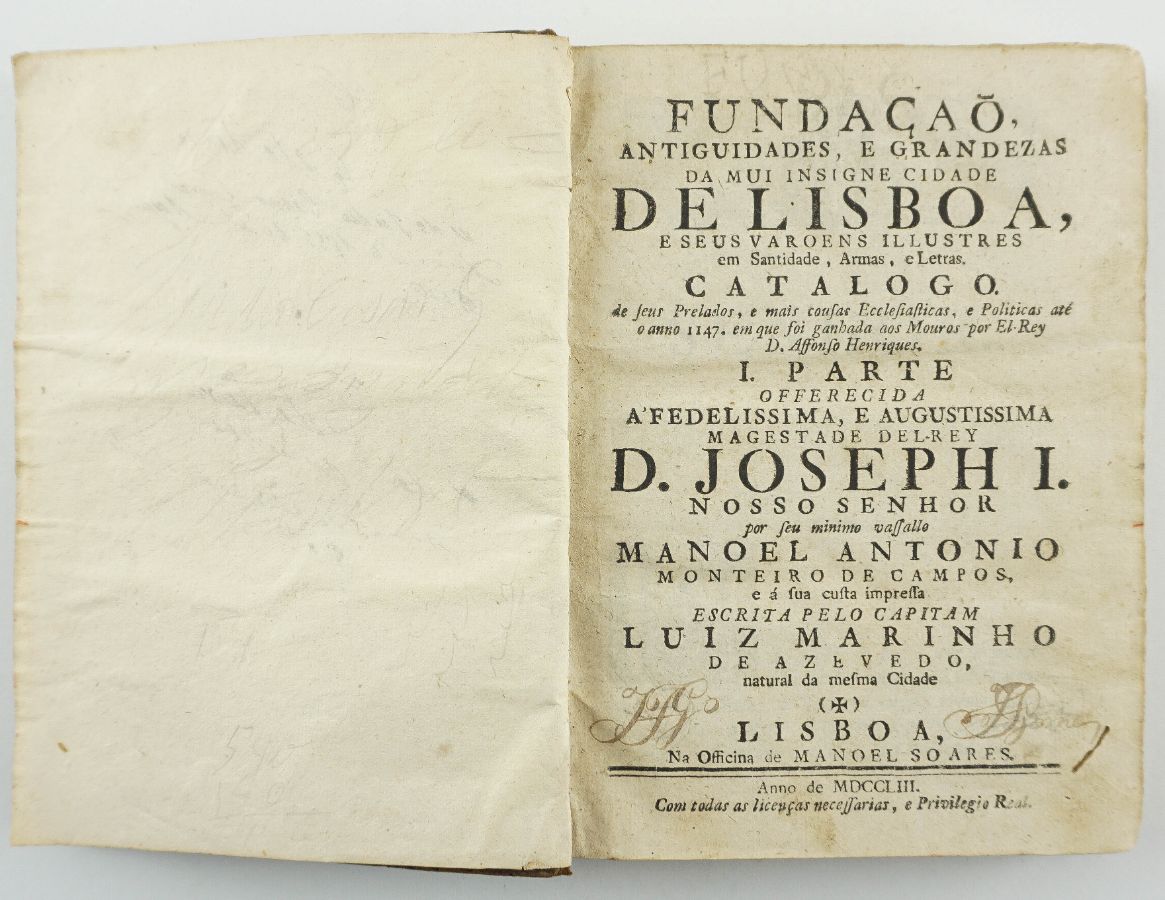 FUNDAÇAÕ,
ANTIGUIDADES, E GRANDEZAS
DA MUI INSIGNE CIDADE
DE LISBOA,
E SEUS VAROENS ILLUSTRES
em Santidade, Armas, e Letras.
CATALOGO.
de ſeus Prelados, e mais couſas Eccleſiaſticas, e Politicas até
o anno 1147. em que foi ganhada aos Mouros por El-Rey
D. Affonſo Henriques.
I. PARTE
OFFERECIDA
A' FEDELISSIMA, E AUGUSTISSIMA
MAGESTADE DEL-REY
D. JOSEPH I.
NOSSO SENHOR
por ſeu minimo vaſſallo
MANOEL ANTONIO
MONTEIRO DE CAMPOS,
e á ſua cuſta impreſſa
ESCRITA PELO CAPITAM
LUIZ MARINHO
DE AZEVEDO,
natural da meſma Cidade
(✠)
LISBOA,
Na Officina de MANOEL SOARES.
Anno de MDCCLIII.
Com todas as licenças neceſſarias, e Privilegio Real.